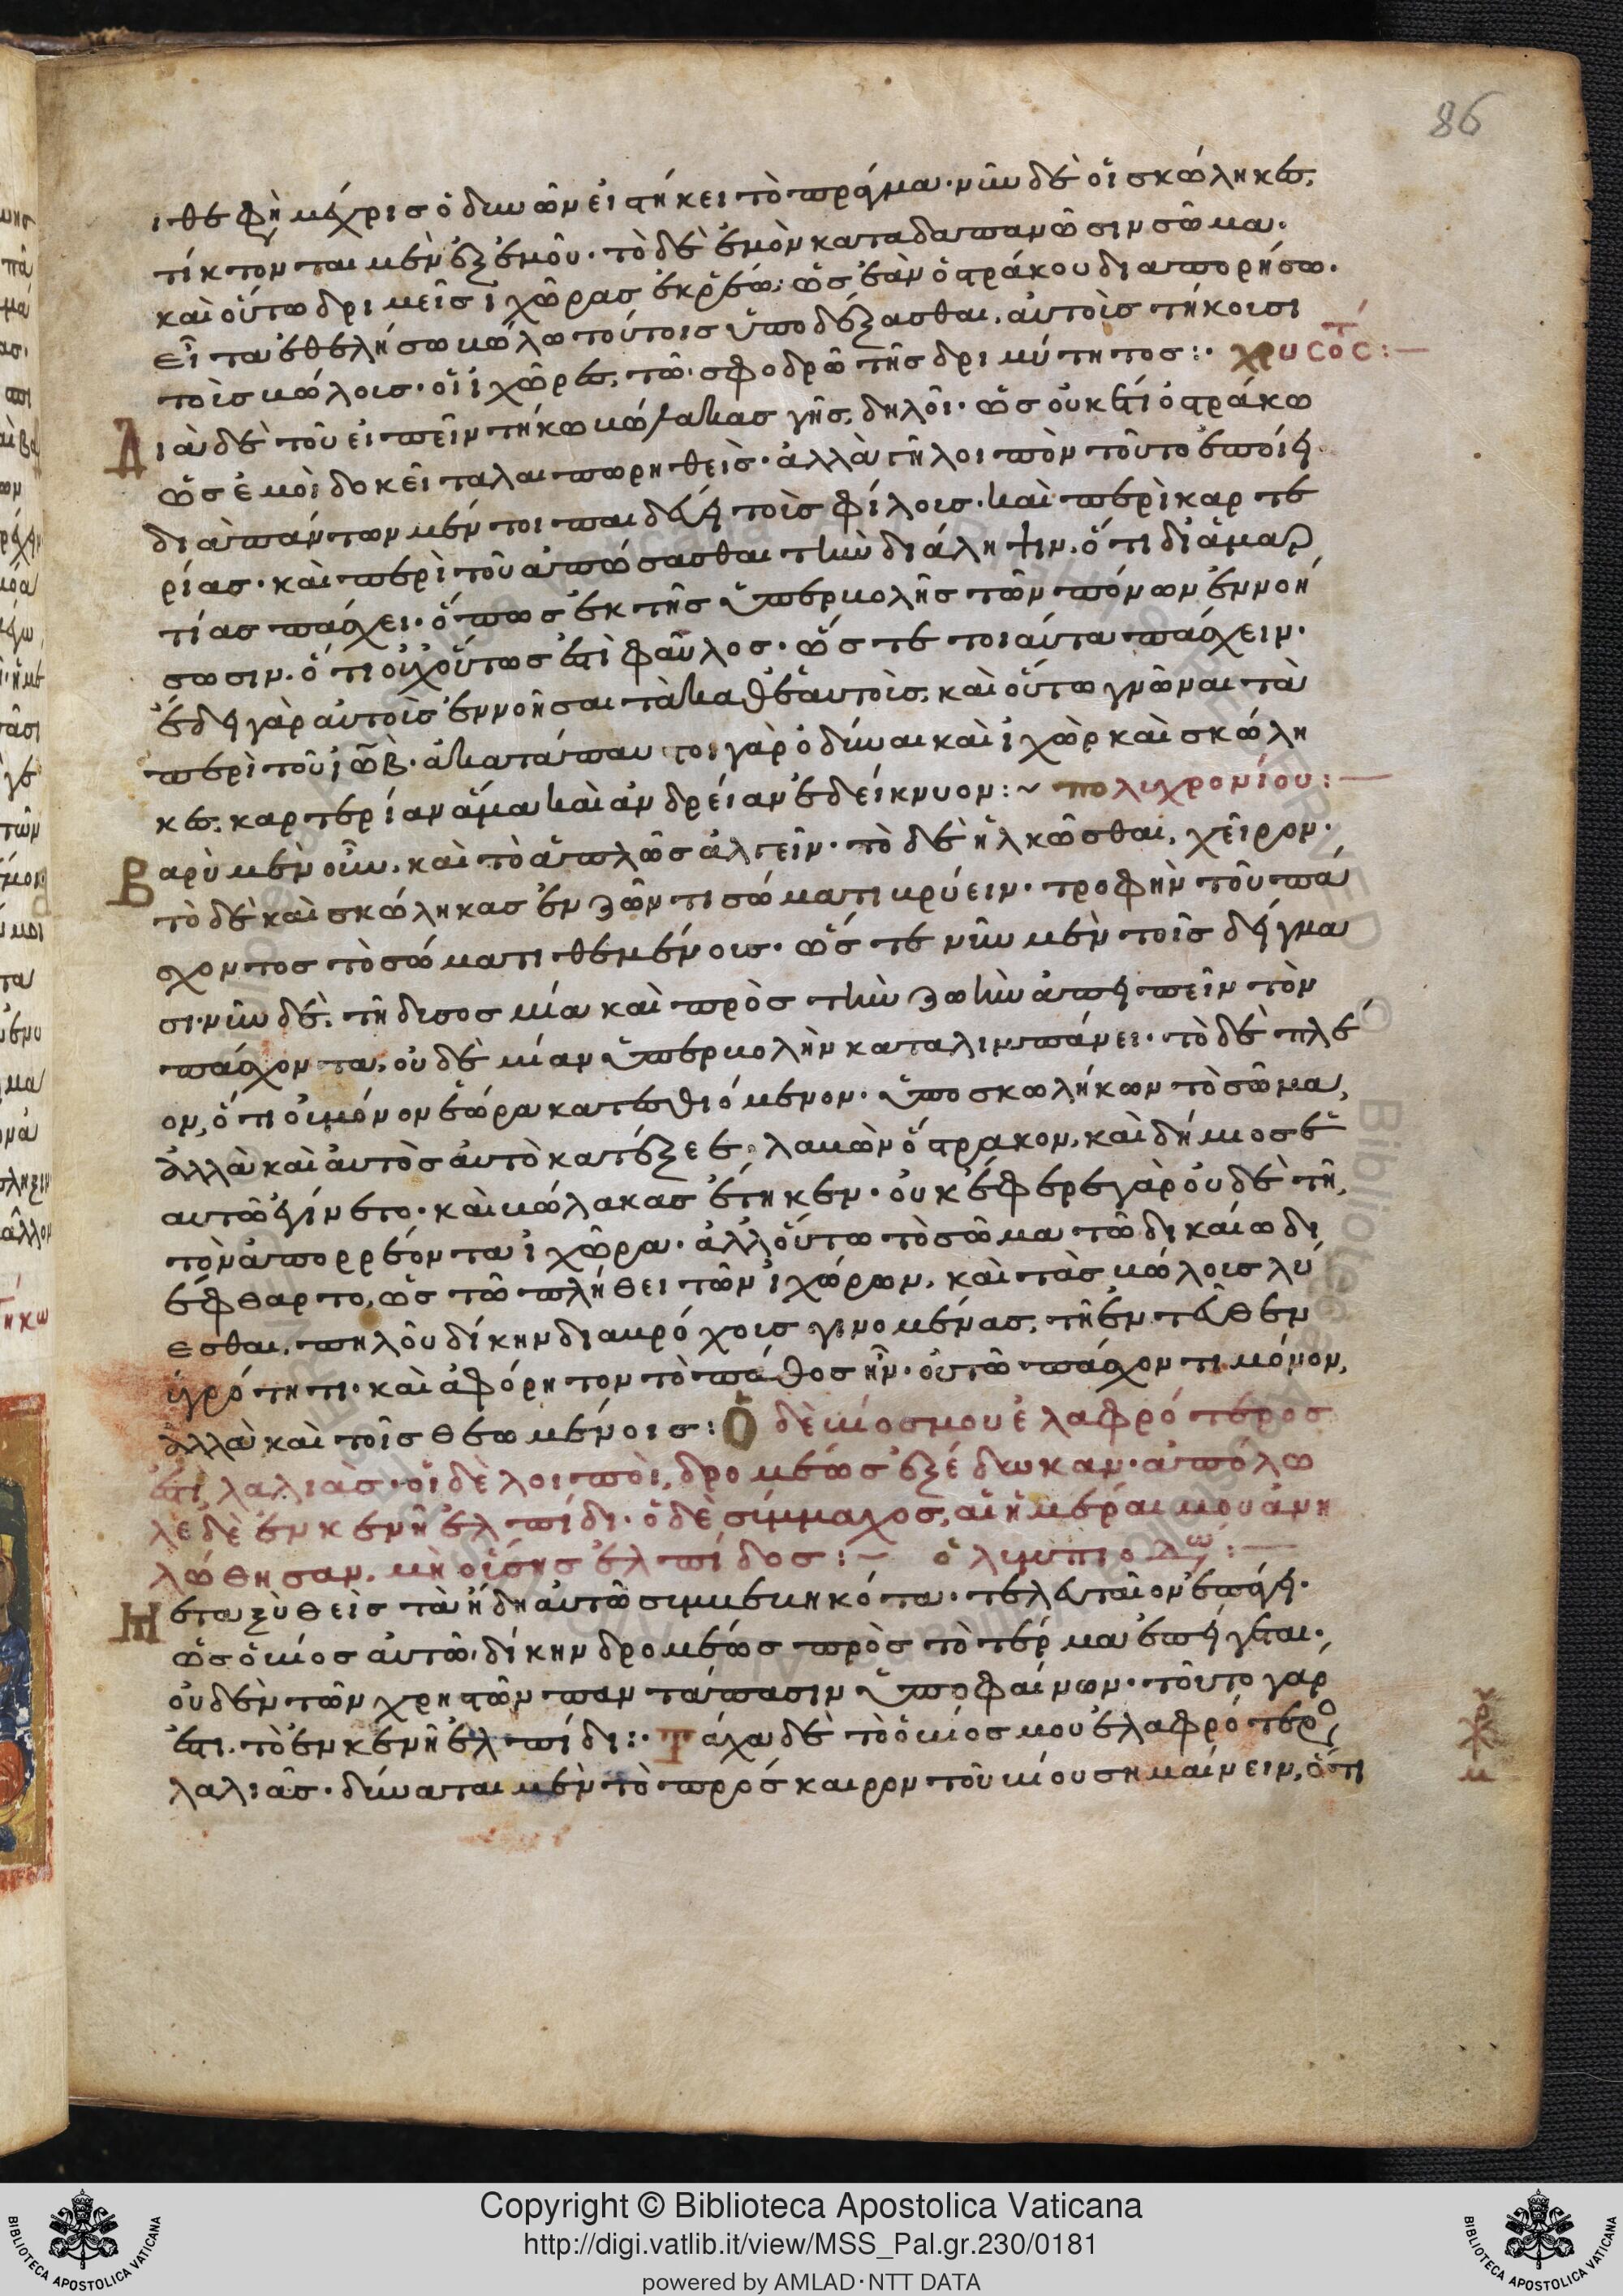 86
ιθεφὴ μέχρις ὀδυνῶν εἱστήκει τὸ πρᾶγμα· νῦν δὲ οἱ σκώληκες,
τίκτονται μὲν ἐξ ἐμοῦ· τὸ δὲ ἐμὸν καταδαπανῶσιν σῶμα·
καὶ οὕτω δριμεῖς ἰχῶρας ἐκρέω, ὡς ἐὰν ὀστράκου διαπορήσω·
εἶτα ἐθελήσω βώλω τούτοις ὑποδέξασθαι, αὐτοῖς τήκουσι
τοῖς βώλοις· οἱ ἰχῶρες, τῶ σφοδρῶ τῆς δριμύτητος:· χρυσοστ:—
Διὰ δὲ τοῦ εἰπεῖν τήκω βώλακας γῆς, δηλοῖ· ὡς οὐκέτι ὀστράκω
ὥς ἐμοὶ δοκεῖ ταλαιπωρηθείς· ἀλλὰ τῆ λοιπὸν τοῦτο ἐποίει·
διαπάντων μέν τοι παιδεύει τοῖς φίλοις· καὶ περὶ καρτε
ρίας· καὶ περὶ τοῦ ἀπώσασθαι τὴν διάληψιν· ὅτι δι' ἁμαρ
τίας πάσχει· ὅπως ἐκ τῆς ὑπερβολῆς τῶν πόνων ἐννοή
σωσιν· ὅτι οὐχ οὕτως ἐστὶ φαῦλος· ὥς τε τοιαῦτα πάσχειν·
ἔδει γὰρ αὐτοῖς ἐννοῆσαι τὰ καθ' ἑαυτοῖς, καὶ οὕτω γνῶναι τὰ
περὶ τοῦ ἰώβ· ἀκατάπαυστοι γὰρ ὀδύναι καὶ ἰχὼρ καὶ σκώλη
κες, καρτερίαν ἅμα καὶ ἀνδρείαν ἐδείκνυον:~ πολυχρονίου:—
Βαρὺ μὲν οὖν, καὶ τὸ ἁπλῶς ἀλγεῖν· τὸ δὲ ἡλκῶσθαι, χεῖρον·
τὸ δὲ καὶ σκώληκας ἐν ζῶντι σώματι βρύειν· τροφὴν τοῦ πά
σχοντος τὸ σῶμα τιθεμένοις· ὥς τε νῦν μὲν τοῖς δήγμα
σι· νῦν δὲ, τῆ δυσοσμία καὶ πρὸς τὴν ζωὴν ἀπειπεῖν τὸν
πάσχοντα, οὐδὲ μίαν ὑπερβολὴν καταλιμπάνει· τὸ δὲ πλέ
ον, ὅτι οὐ μόνον ἑώρα κατεσθιόμενον· ὑπο σκωλήκων τὸ σῶμα,
ἀλλὰ καὶ αὐτὸς αὐτὸ κατέξεε· λαβὼν ὄστρακον, καὶ δήμιος ἑ
αυτῶ ἐγίνετο· καὶ βώλακας ἔτηκεν· οὐκ ἔφερε γὰρ οὐδὲ τῆ,
τὸν ἀπορρέοντα ἰχῶρα· ἀλλ' οὕτω τὸ σῶμα τῶ δικαίω δι
έφθαρτο, ὡς τῶ πλήθει τῶν ἰχώρων, καὶ τὰς βώλοις λύ
εσθαι, πηλοῦ δίκην διαβρόχοις γινομένας, τῆ ἐντεῦθεν
ὑγρότητι· καὶ ἀφόρητον τὸ πάθος ἦν· οὐ τῶ πάσχοντι μόνον,
ἀλλὰ καὶ τοῖς θεωμένοις: Ὁ δὲ βίος μου ἐλαφρότερος
ἐστὶ λαλιᾶς· οἱ δὲ λοιποὶ, δρομέως ἐξέδωκαν· ἀπόλω
λε δὲ ἐν κενῆ ἐλπίδι· ὁ δὲ σύμμαχος, αἱ ἡμέραι μου ἀνη
λώθησαν, μὴ οὔσης ἐλπίδος:— ὀλυμπιοδώ:—
Μεταξὺ θεὶς τὰ ἤδη αὐτῶ συμβεβηκότα· τελευταῖον ἐπάγει·
ὡς ὁ βίος αὐτῶ, δίκην δρομέως πρὸς τὸ τέρμα ἐπείγεται·
οὐδὲν τῶν χρηστῶν παντάπασιν ὑποφαίνων· τοῦτο γὰρ
ἐστι, τὸ ἐν κενῆ ἐλπίδι:· Τάχα δὲ τὸ ὁ βίος μου ἐλαφρότερος
λαλιᾶς· δύναται μὲν τὸ πρόσκαιρον τοῦ βίου σημαίνειν, ὅτι
Copyright © Biblioteca Apostolica Vaticana
http://digi.vatlib.it/view/MSS_Pal.gr.230/0181
powered by AMLAD·NTT DATA
BIBLIOTECA APOSTOLICA VATICANA
BIBLIOTECA APOSTOLICA VATICANA